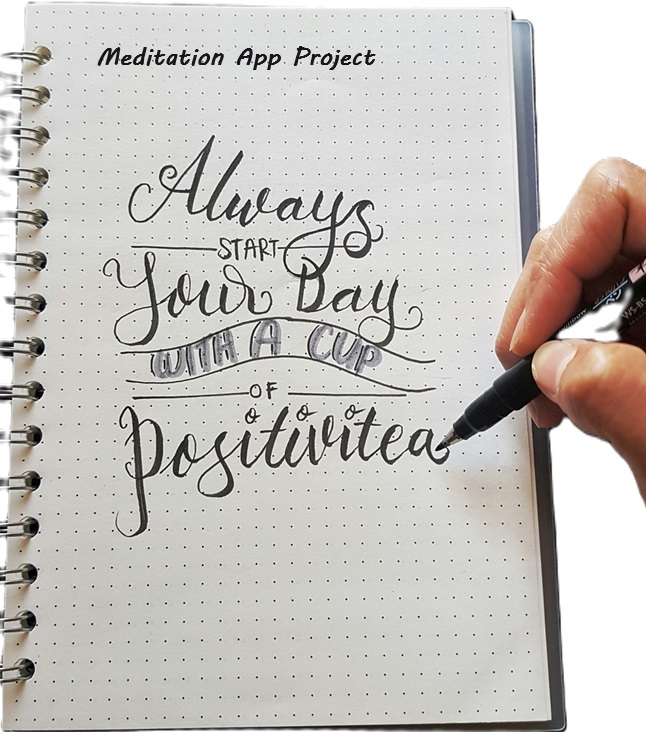 Meditation App Project
Always
START
Your Day
WITH A CUP
OF
Positivitea